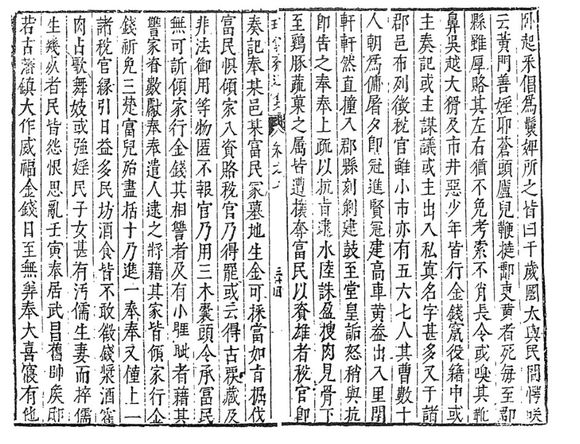 卧起乘倡爲鬟婢所之皆曰千歲國大與民間愕
云黃門善婬聊蒼頭廬兒鞭撻郡吏黃者死每至郡
縣雖厚賂其左右猶不免考索不肖長令或嗅其靴
鼻吳越大猾及市井惡少年皆行金錢竄役籍中或
主奏記或主謀議或主出入私眞名字甚多又于諸
郡邑布列後稅官雖小市亦有五六七人其曹數十
人朝爲傭屠夕卽冠進賢冠建高車黃蓋出入里閈
軒軒然直撞入郡縣刻建鼓至堂皇詬怒稍與抗
卽告之奉奉上疏以抗旨逮水陸誅盈搜肉見骨下
至鷄豚蔬菓之屬皆遭攘奪富民以貲雄者稅官卽
卷之
三十四
奏記奉某邑某富民家墓地生金可採當如旨掘伐
富民懼傾家入貲賂稅官乃得罷或云得古藏及
非法御用等物匿不報官乃用三木囊頭令承富民
無可訢傾家行金錢其相讐者及有小睚眦者藉其
讐家眷數獻奉奉遣人逮之將藉其家皆傾家行金
錢祈免三楚富兒殆盡括十乃進一奉奉又僅上一
諸稅官緣引日益多民坊酒食皆不敢徵錢漿酒藿
肉占歌舞妓或強婬民子女甚有汚儒生妻而捽儒
生幾死者民皆怨恨思亂壬寅奉居武昌舊帥矣邸
若古藩鎮大作威福金錢日至無筭奉大喜寢有他